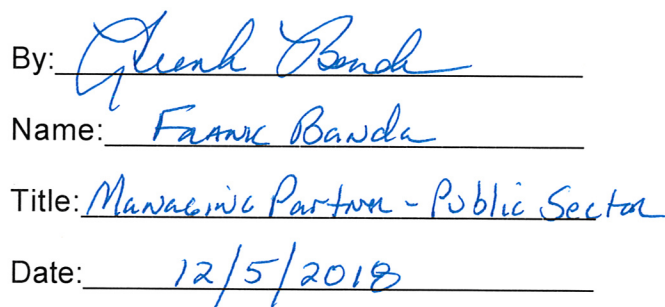 By: Frank Banda
Name: Frank Banda
Title: Managing Partner - Public Sector
Date: 12/5/2018